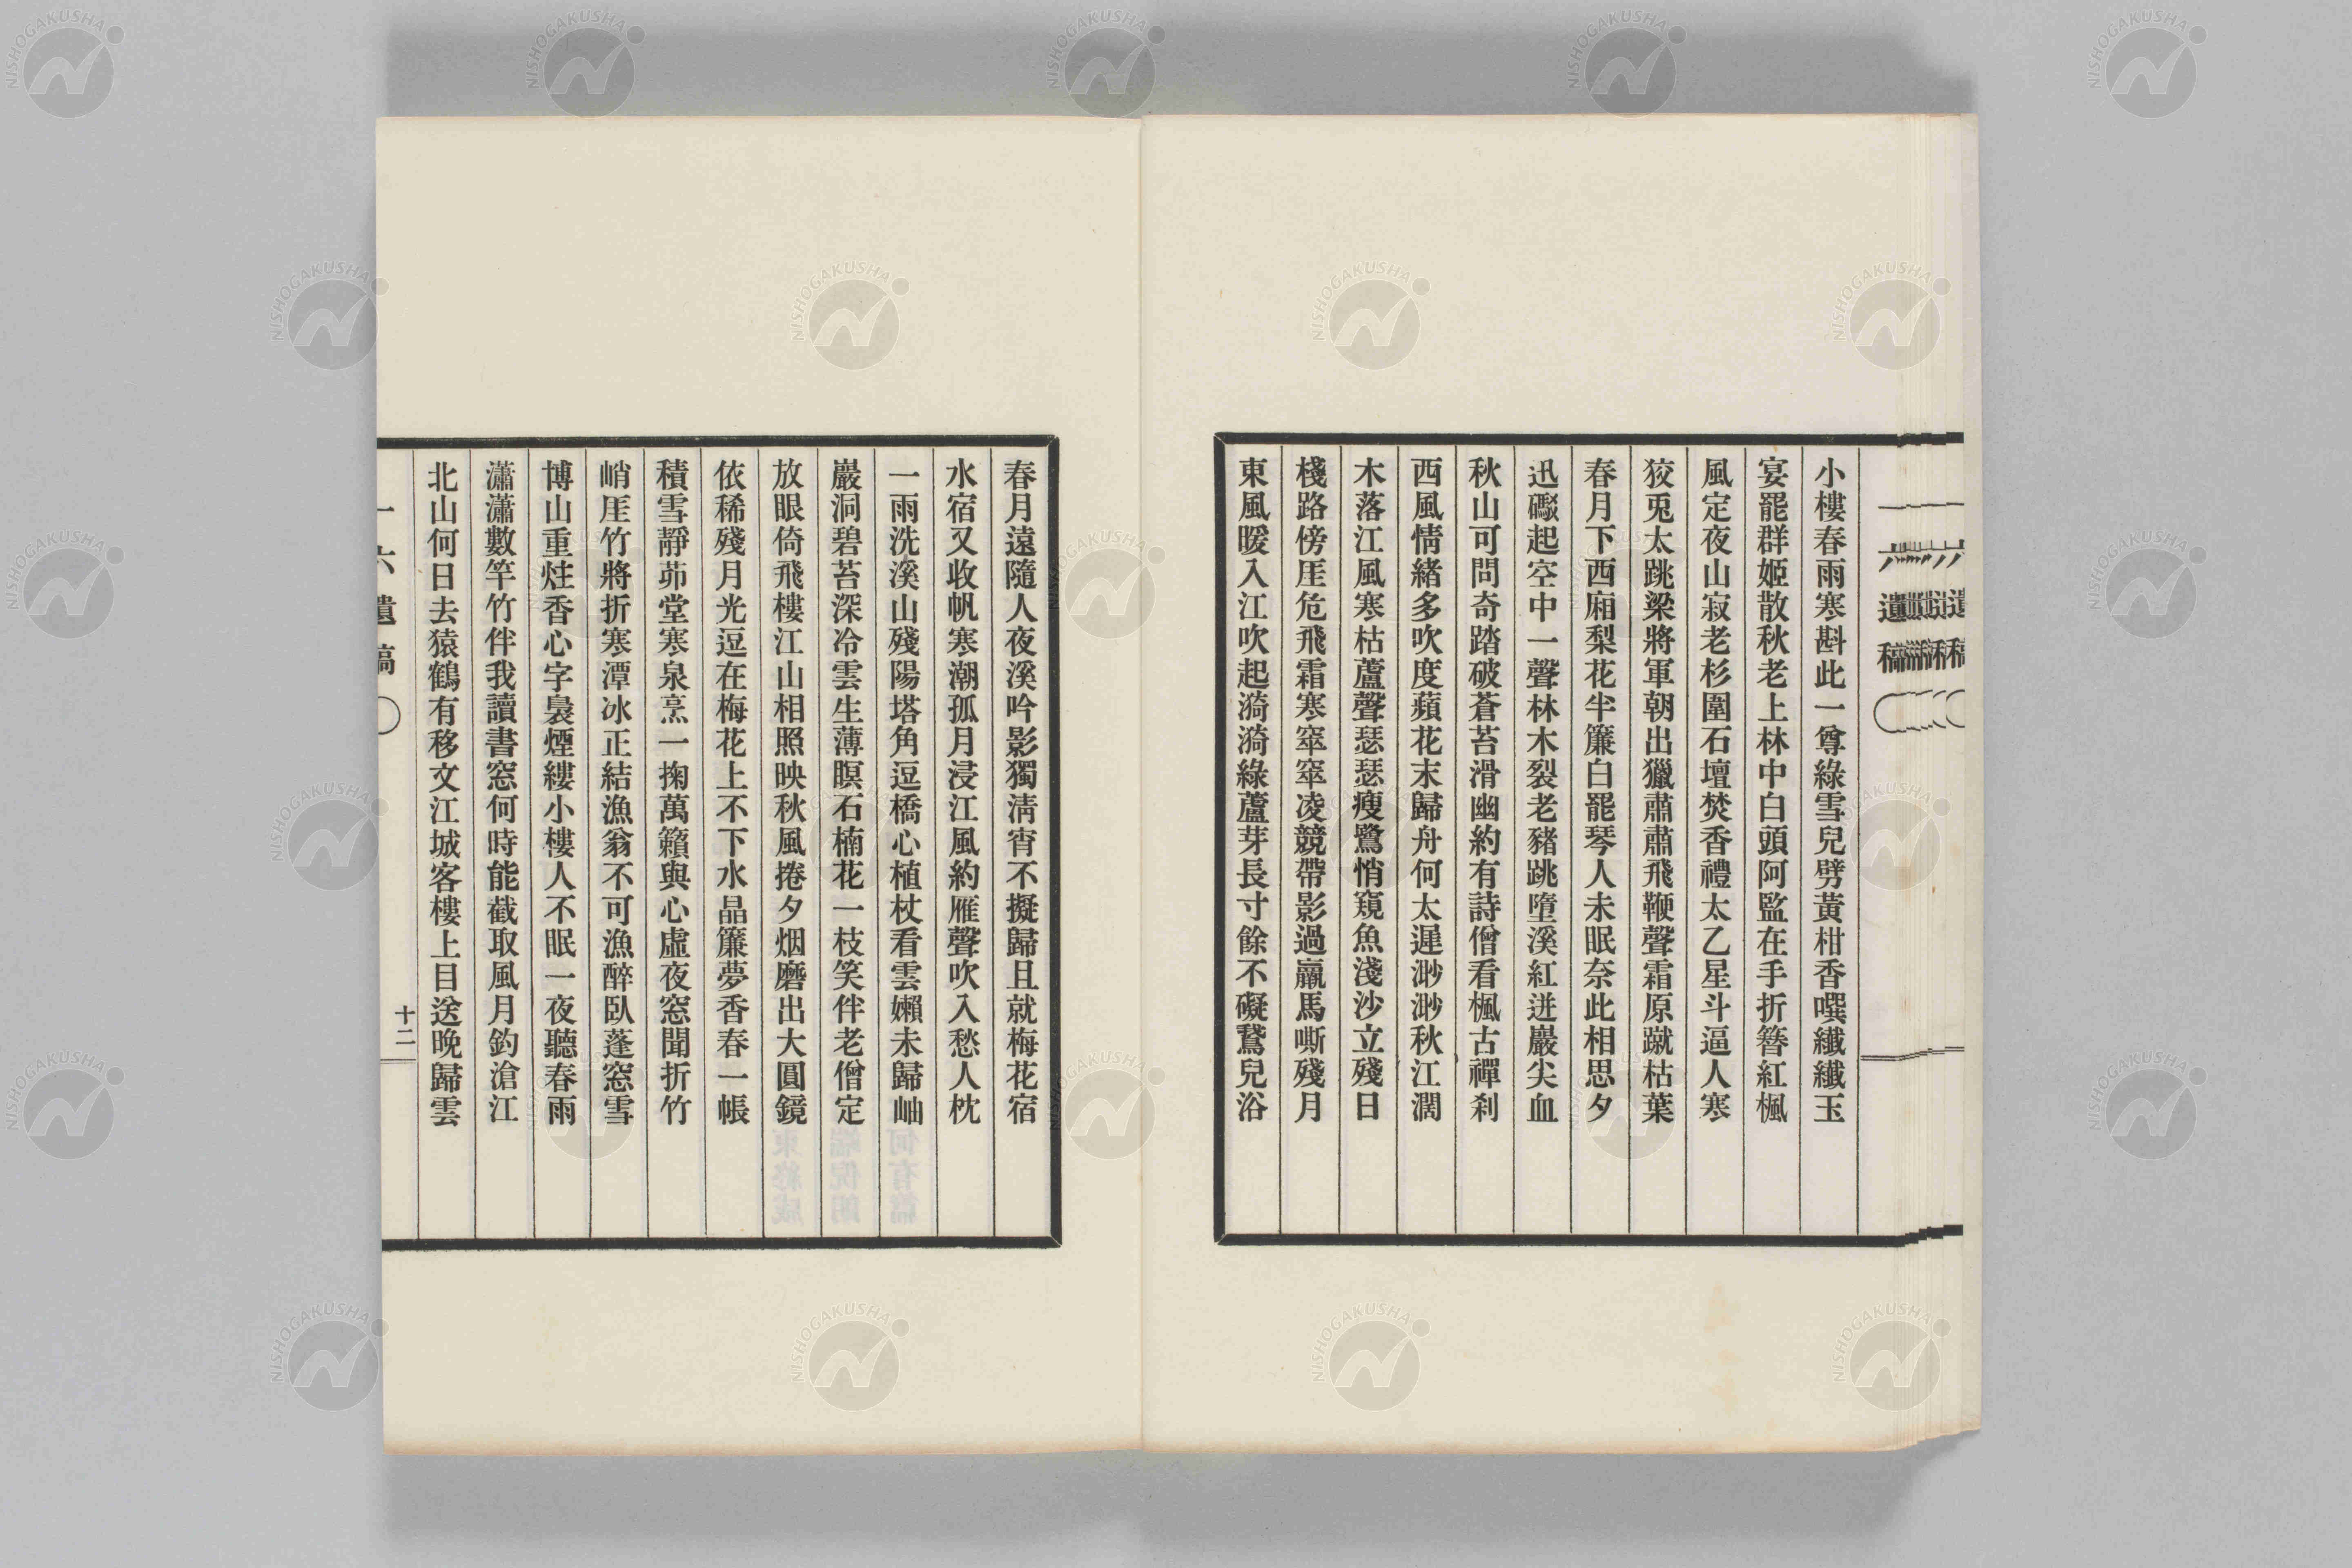 一六遺稿
小樓春雨寒斟此一尊綠雪兒劈黃柑香噀纖纖玉
宴罷群姬散秋老上林中白頭阿監在手折簪紅楓
風定夜山寂老杉圍石壇焚香禮太乙星斗逼人寒
狡兎太跳梁將軍朝出獵肅肅飛鞭聲霜原蹴枯葉
春月下西廂梨花半簾白罷琴人未眠奈此相思夕
迅礮起空中一聲林木裂老豬跳墮溪紅迸巖尖血
秋山可問奇踏破蒼苔滑幽約有詩僧看楓古禪刹
西風情緒多吹度蘋花末歸舟何太遲渺渺秋江濶
木落江風寒枯蘆聲瑟瑟瘦鷺悄窺魚淺沙立殘日
棧路傍厓危飛霜寒窣窣凌競帶影過羸馬嘶殘月
東風暖入江吹起漪漪綠蘆芽長寸餘不礙鵞兒浴
春月遠隨人夜溪吟影獨淸宵不擬歸且就梅花宿
水宿又收帆寒潮孤月浸江風約雁聲吹入愁人枕
一雨洗溪山殘陽塔角逗橋心植杖看雲嬾未歸岫
巖洞碧苔深冷雲生薄暝石楠花一枝笑伴老僧定
放眼倚飛樓江山相照映秋風捲夕烟磨出大圓鏡
依稀殘月光逗在梅花上不下水晶簾夢香春一帳
積雪靜茆堂寒泉烹一掬萬籟與心虛夜窓聞折竹
峭厓竹將折寒潭冰正結漁翁不可漁醉臥蓬窓雪
博山重炷香心字裊煙縷小樓人不眠一夜聽春雨
瀟瀟數竿竹伴我讀書窓何時能截取風月釣滄江
北山何日去猿鶴有移文江城客樓上目送晩歸雲
一六遺稿
十二
NISHOGAKUSHA